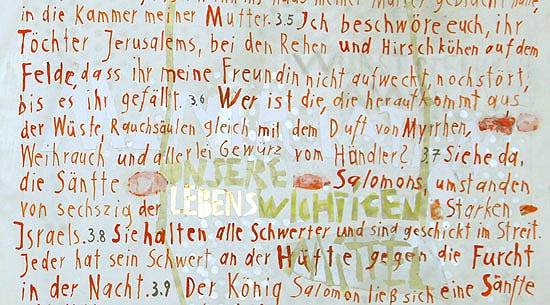 meiner Mutter gebracht habe,
in die Kammer meiner Mutter. 3.5 Ich beschwöre euch, ihr
Töchter Jerusalems, bei den Rehen und Hirschkühen auf dem
Felde, dass ihr meine Freundin nicht aufweckt, noch stört,
bis es ihr gefällt. 3.6 Wer ist die, die heraufkommt aus
der Wüste, Rauchsäulen gleich mit dem Duft von Myrrhen,
Weihrauch und allerlei Gewürz vom Händler? 3.7 Siehe da,
die Sänfte Salomons, umstanden
UNSERE
von sechszig der Starken
LEBENSWICHTIGEN
Israels. 3.8 Sie halten alle Schwerter und sind geschickt im Streit.
Jeder hat sein Schwert an der Hüfte gegen die Furcht
MITTEL
in der Nacht. 3.9 Der König Salomon ließ sich eine Sänfte